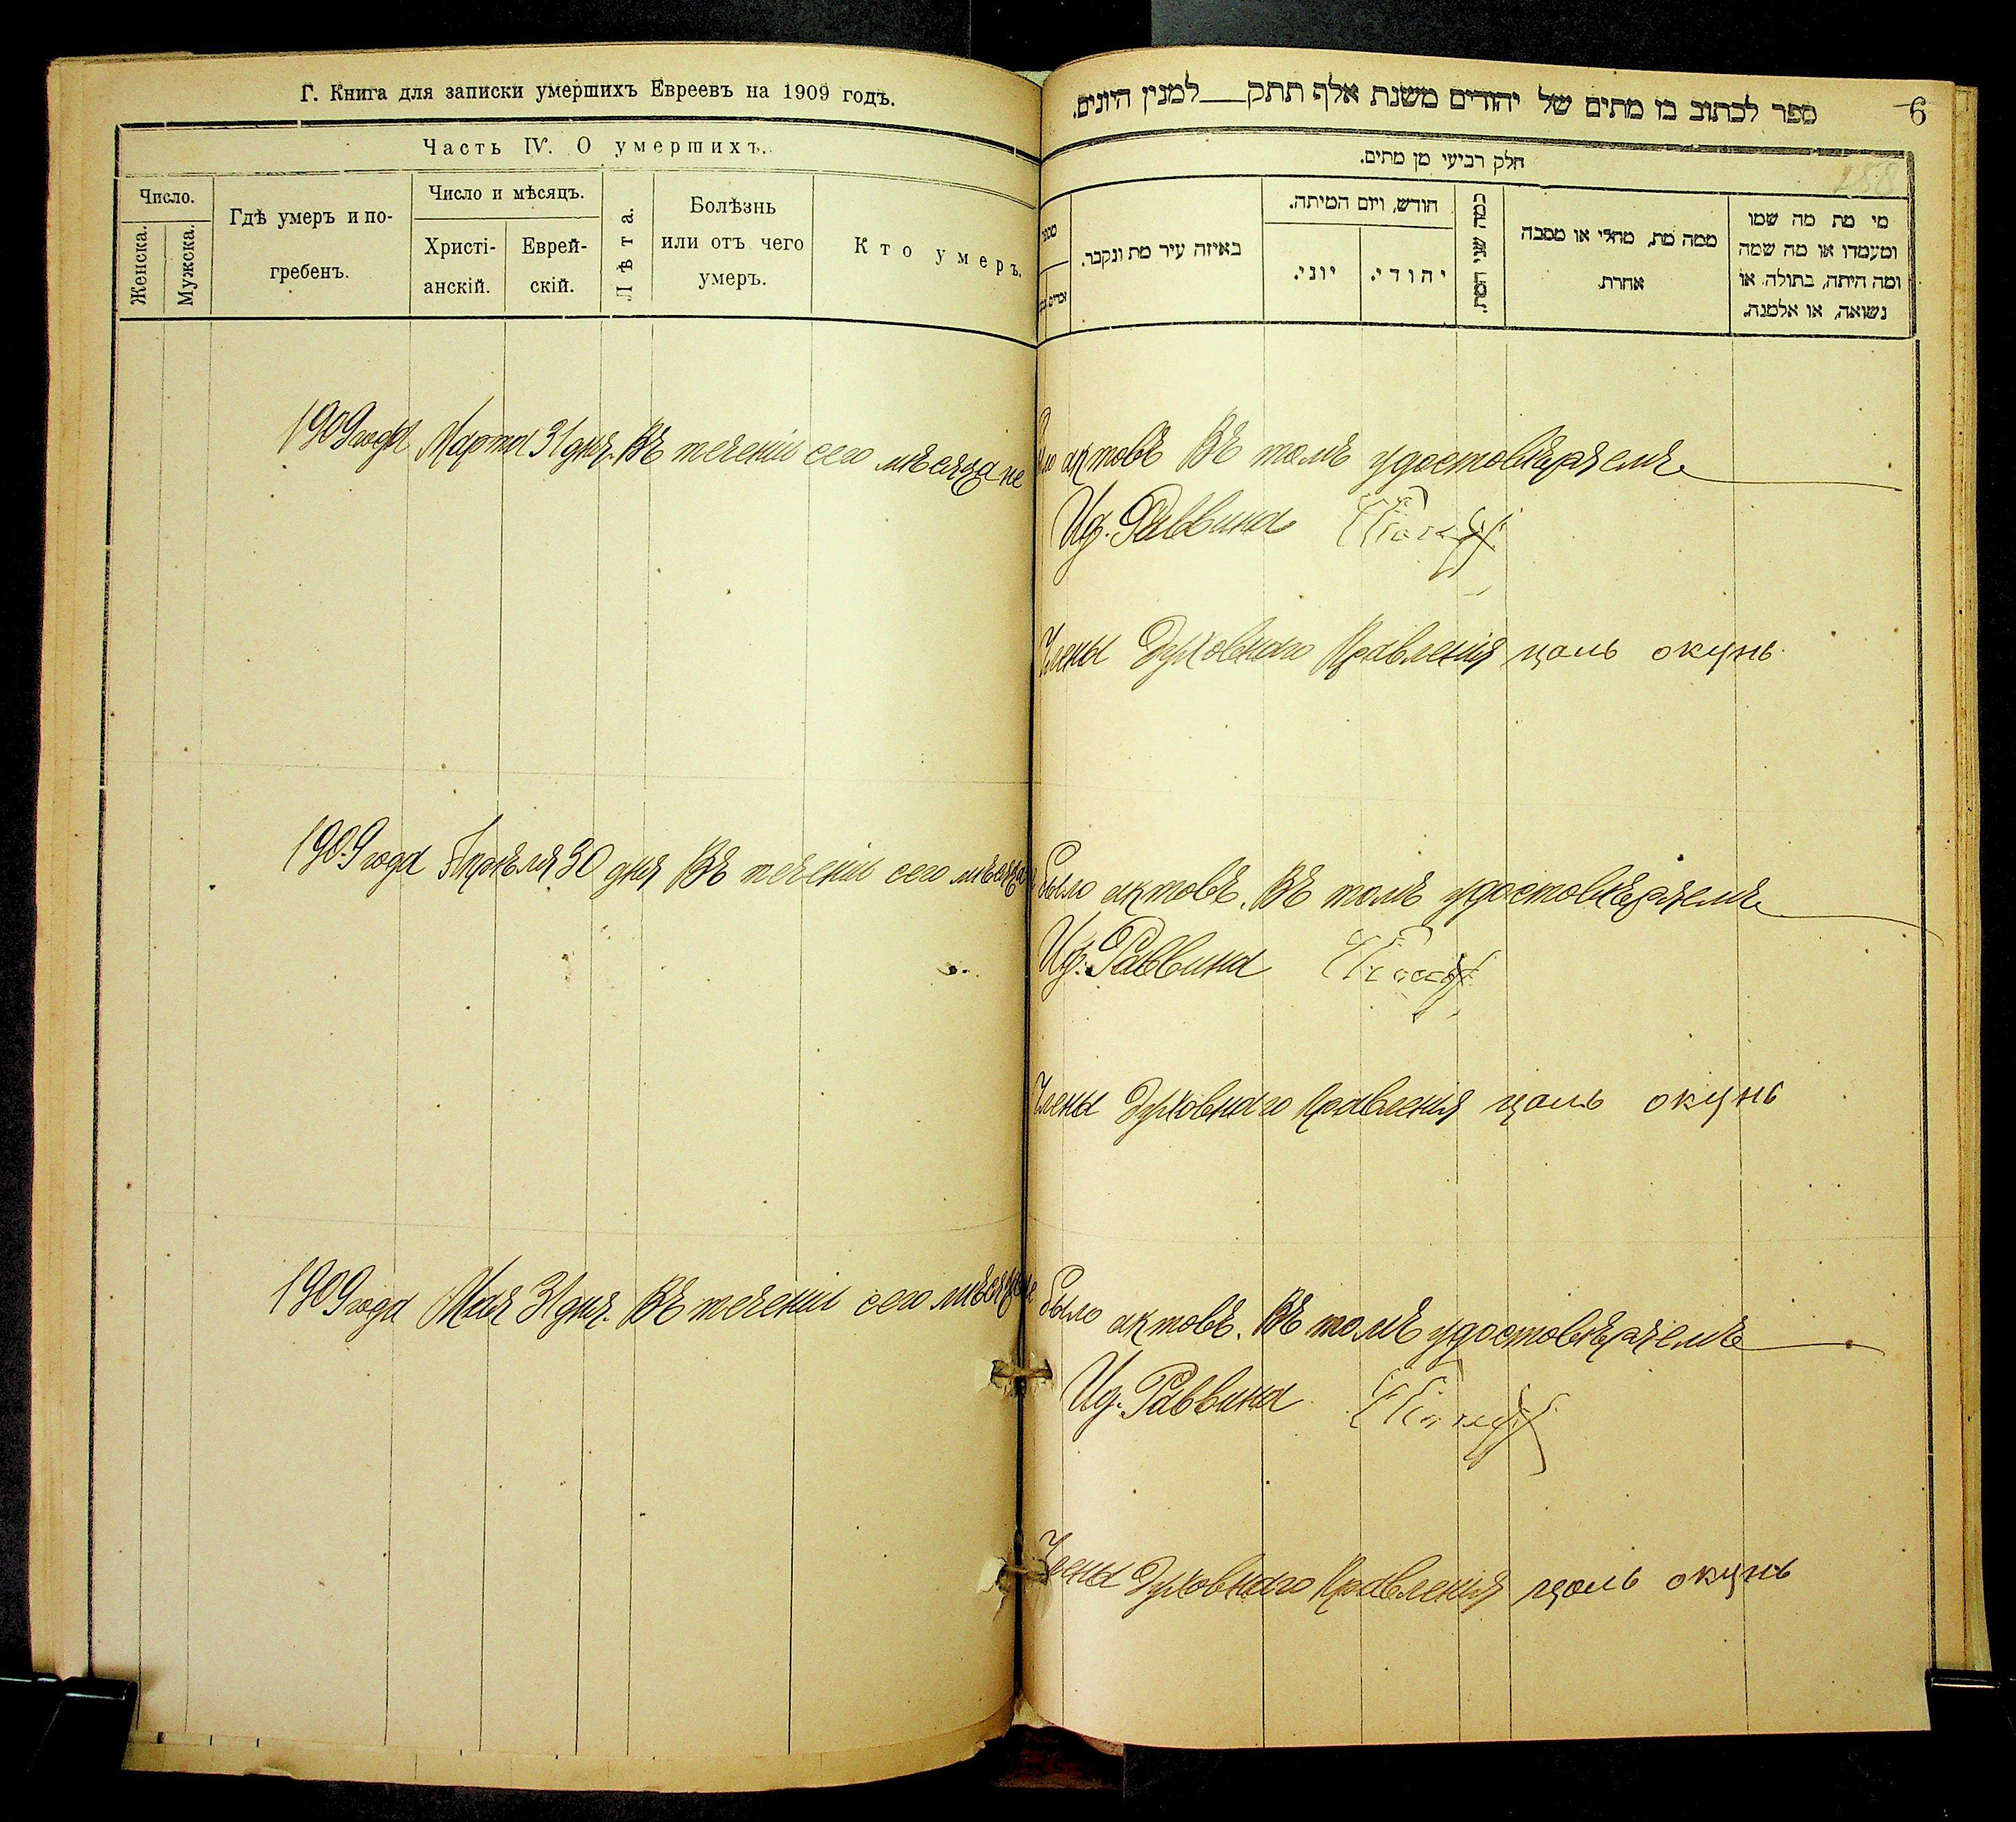 Г. Книга для записки умершихъ Евреевъ на 1909 годъ.
Часть IV. О умершихъ.
Число.
Женска.
Мужска.
Гдѣ умеръ и по-
гребенъ.
Число и мѣсяцъ.
Христі-
анскій.
Еврей-
скій.
Лѣта.
Болѣзнь
или отъ чего
умеръ.
Кто умеръ.
ספר לכתוב בו מתים של יהודים משנת אלף תתק למנין היונים.
6
258
חלק רביעי מן מתים.
מספר
באיזה עיר מת ונקבר.
חודש, ויום המיתה.
יוני.
יהודי.
כמה שני המת.
ממה מת, מחלי או מסבה
אחרת
מי מת מה שמו
ומעמדו או מה שמה
ומה היתה, בתולה או
נשואה, או אלמנה.
1909 года Марта 31 дня. Въ теченіи сего мѣсяца не было актовъ Въ томъ удостовѣряемъ
Ид. Раввина
Члены Духовнаго Правленія цаль окунь
1909 года Апрѣля 30 дня Въ теченіи сего мѣсяца было актовъ. Въ томъ удостовѣряемъ
Ид. Раввина
Члены Духовнаго Правленія цаль окунь
1909 года Мая 31 дня. Въ теченіи сего мѣсяца не было актовъ. Въ томъ удостовѣряемъ
Ид. Раввина
Члены Духовнаго Правленія цаль окунь